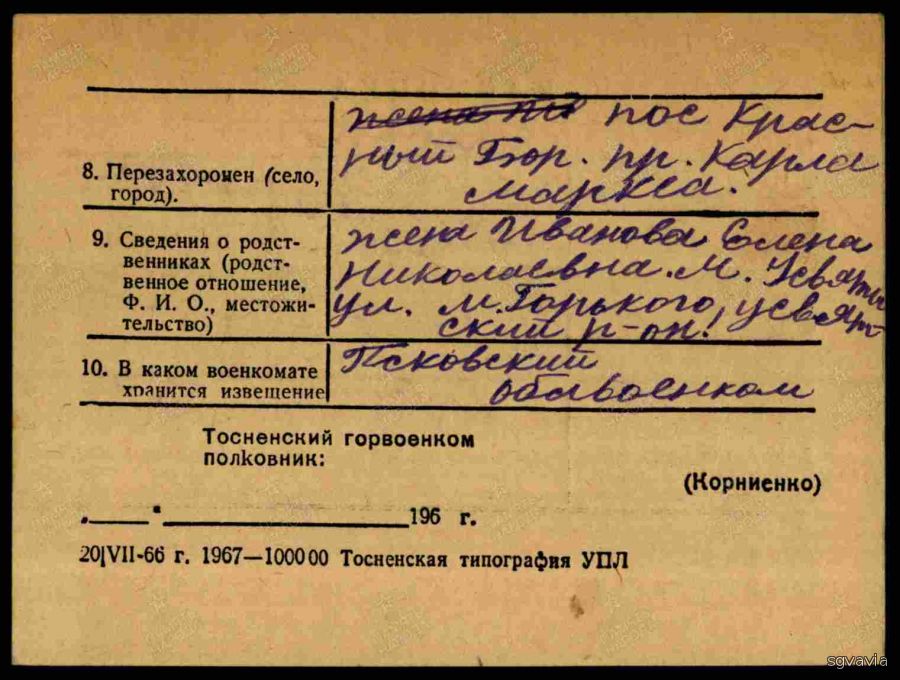 жена пос Крас-
ный Бор. пр. Карла
Маркса.
8. Перезахоронен (село,
город).
9. Сведения о родст-
венниках (родст-
венное отношение,
Ф. И. О., местожи-
тельство)
жена Иванова Елена
Николаевна. М. Усвяты
ул. М. Горького, Усвят-
ский р-он.
10. В каком военкомате
хранится извещение
Псковский
облвоенком
Тосненский горвоенком
полковник:
(Корниенко)
„____" ____________196 г.
20|VII-66 г. 1967—100000 Тосненская типография УПЛ
ПАМЯТЬ НАРОДА
sgvavia